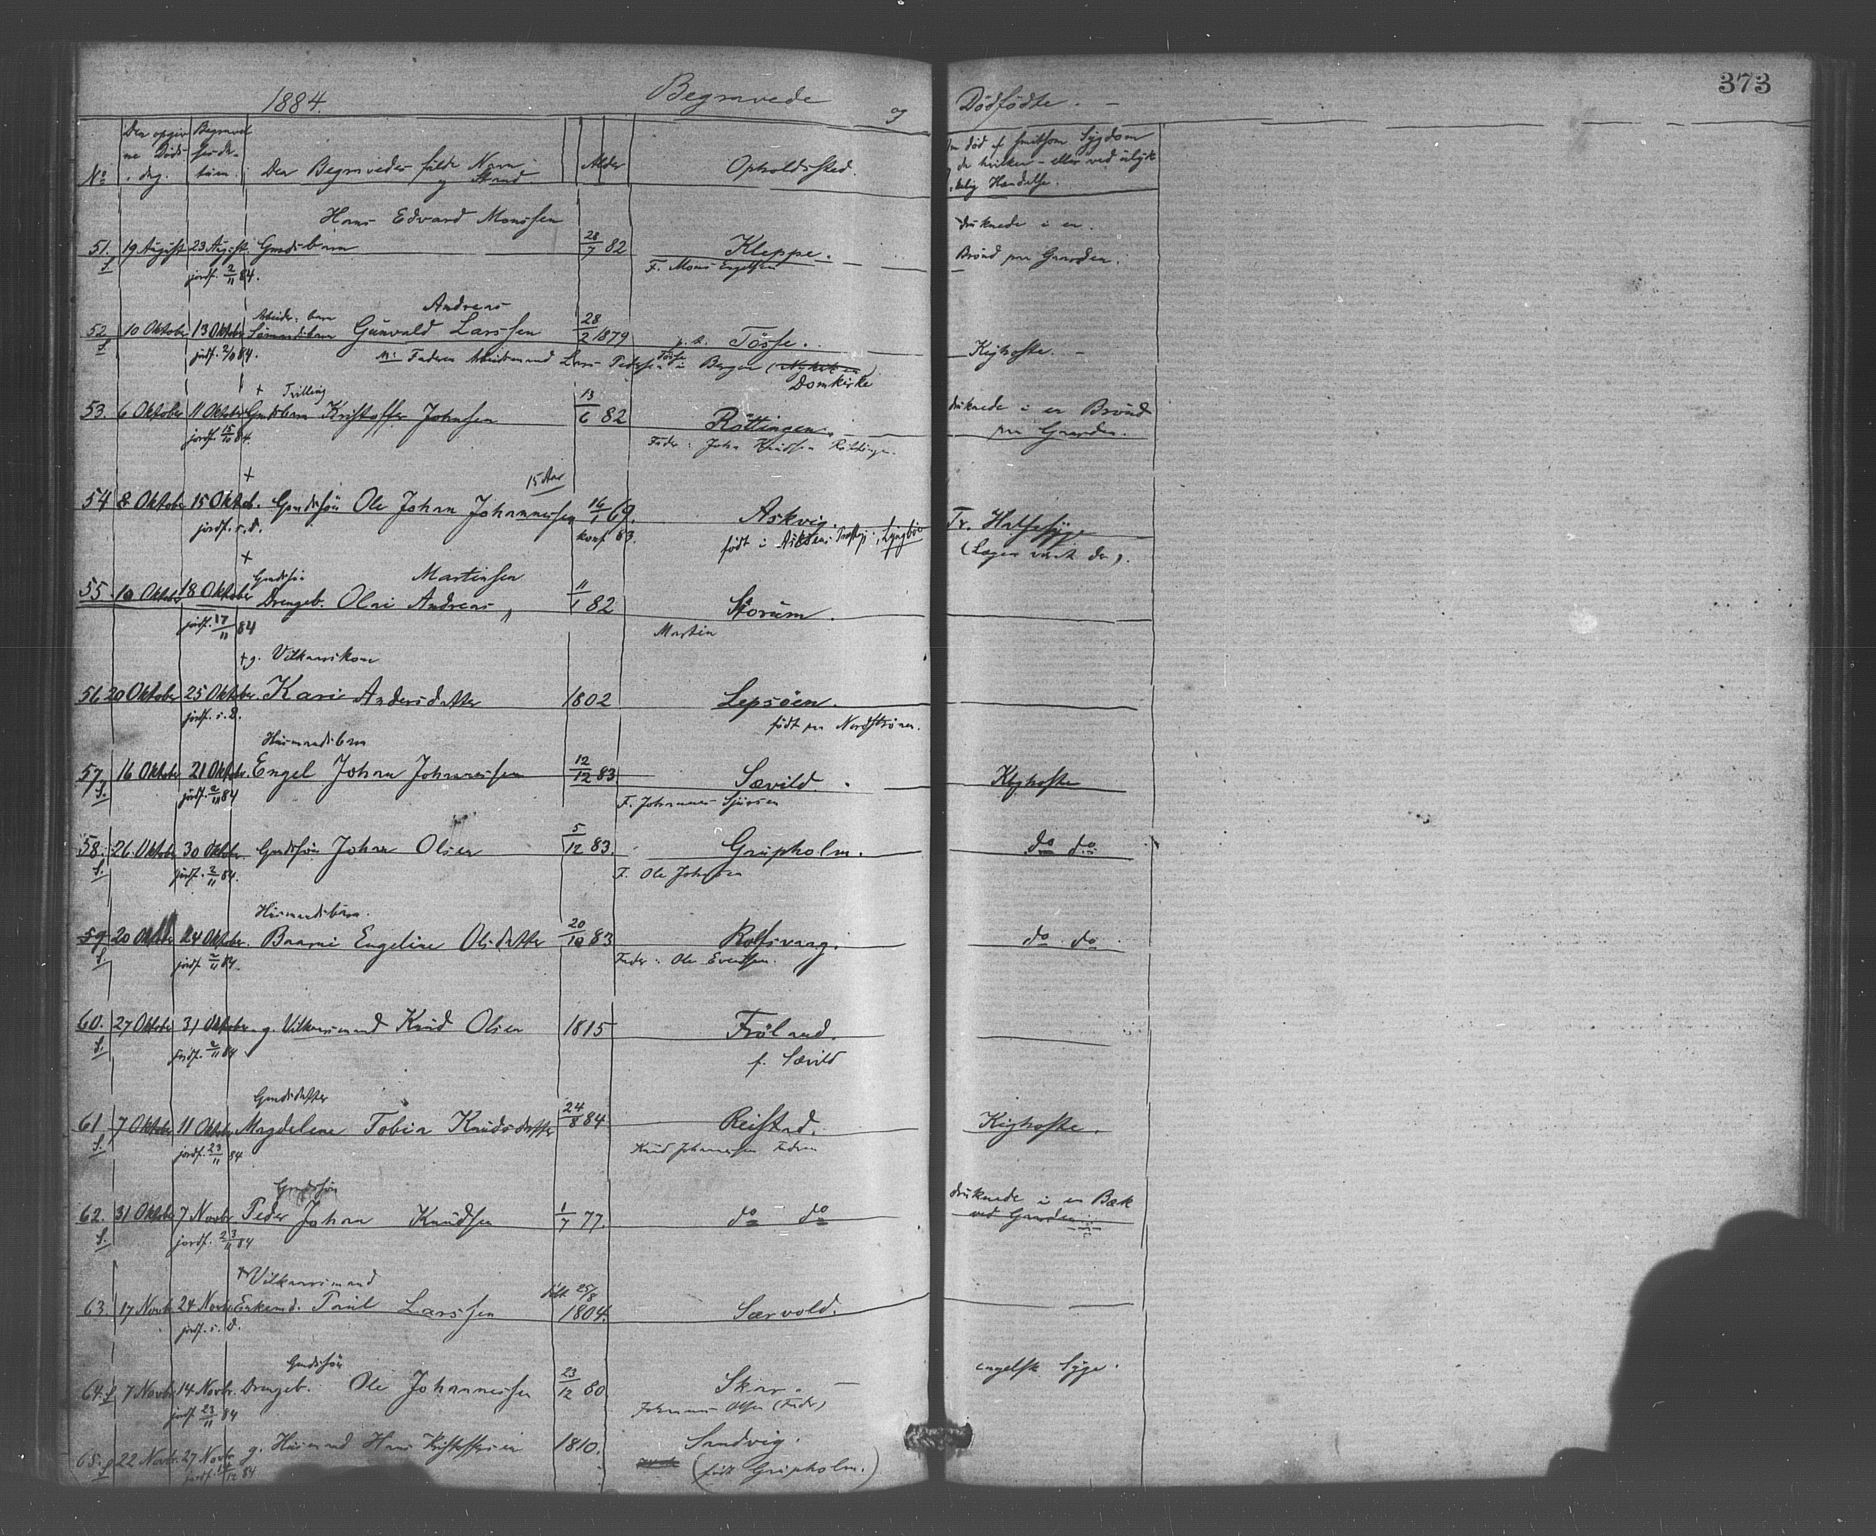 1884. Begravede og Dødfødte. 373
No Den opgivne Døds-dag. Begravelsesdatum. Den Begravedes fulde Navn og Stand. Alder Opholdssted. Om død af smitsom Sygdom
da hvilken - eller ved ulyk-
kelig Hændelse.
Hans Edvard Monssen druknede i en
51. 19 August 23 August Gmdsbarn 28/7 82 Kleppe. Brønd paa Gaarden.
S. jordf. 2/11 84. F. Mons Engelsen
Arbeider. barn Andreas
52 10 Oktober 13 Oktober Gunvald Larssen 28/2 1879 p. t. Tøsse. Kighoste.
S. Faderen Arbeidsmand Lars Pedersen Tøsse i Bergen
Domkirke
+ Trilling
53. 6 Oktober 11 Oktober Gmdsbarn Kristoffer Johnsen 13/6 82 Røttingen. druknede i en Brønd
jordf. 15/10 84. Fader: John Knudsen Røttingen. paa Gaarden.
+ 15 Aar
54 8 Oktober 15 Oktob. Gmdssøn Ole Johan Johannessen 16/1 69. Askvig. Tr. Halssyge
jordf. s. D. konf 83. født i (Læge var der).
+ Gmdssøn Martinsen
55 10 Oktober 18 Oktober Drengeb. Olai Andreas 11/1 82 Storum.
jordf. 17/11 84 Martin
+ g. Vilkaarskone
56 20 Oktober 25 Oktober. Kari Andersdatter 1802 Lepsøen.
jordf. s. D. født paa Nordstrønen.
Husmandsbarn
57 16 Oktober 21 Oktobr. Engel Johan Johannessen 12/12 83. Sævild. Kighoste
S. jordf. 2/11 84 F. Johannes Sjursen
58. 26 Oktober 30 Oktober Gmdssøn Johan Olsen 5/12 83. Gripholm. do do
S. jordf. 2/11 84. F. Ole Johnsen
Husmandsbarn.
59 20 Oktober 24 Oktober. Baarni Engeline Olsdatter 20/10 83 Rolfsvaag. do do
S. jordf. 2/11 84. Fader: Ole Evensen.
60. 27 Oktober 31 Oktober g. Vilkaarsmand Knud Olsen 1815 Frøland.
S. jordf. 2/11 84 f. Sævild
Gmdsdatter
61 7 Oktober 11 Oktober Magdelene Tobia Knudsdatter 24/8 84 Reistad. Kighoste.
S. jordf. 23/11 84 Knud Johannessen Faderen
Gmdssøn
62. 31 Oktober 7 Novbr. Peder Johan Knudsen 1/7 77. do do druknede i en Bæk
S. jordf. 23/11 84 ved Gaarden
+ Vilkaarsmand født 25/8
63. 17 Novbr. 24 Novbr. Enkemd. Poul Larssen 1804. Særvold.
jordf. s. D.
Gmdssøn
64. S. 7 Novbr. 14 Novbr. Drengeb. Ole Johannessen 23/12 80 Skar. engelsk Syge.
jordf. 23/11 84 Johannes Olsen (Fader)
65. S 22 Novbr. 27 Novbr. g. Husmand Hans Kristoffersen 1810. Sandvig.
jordf. 14/12 84 (født Gripholm.)